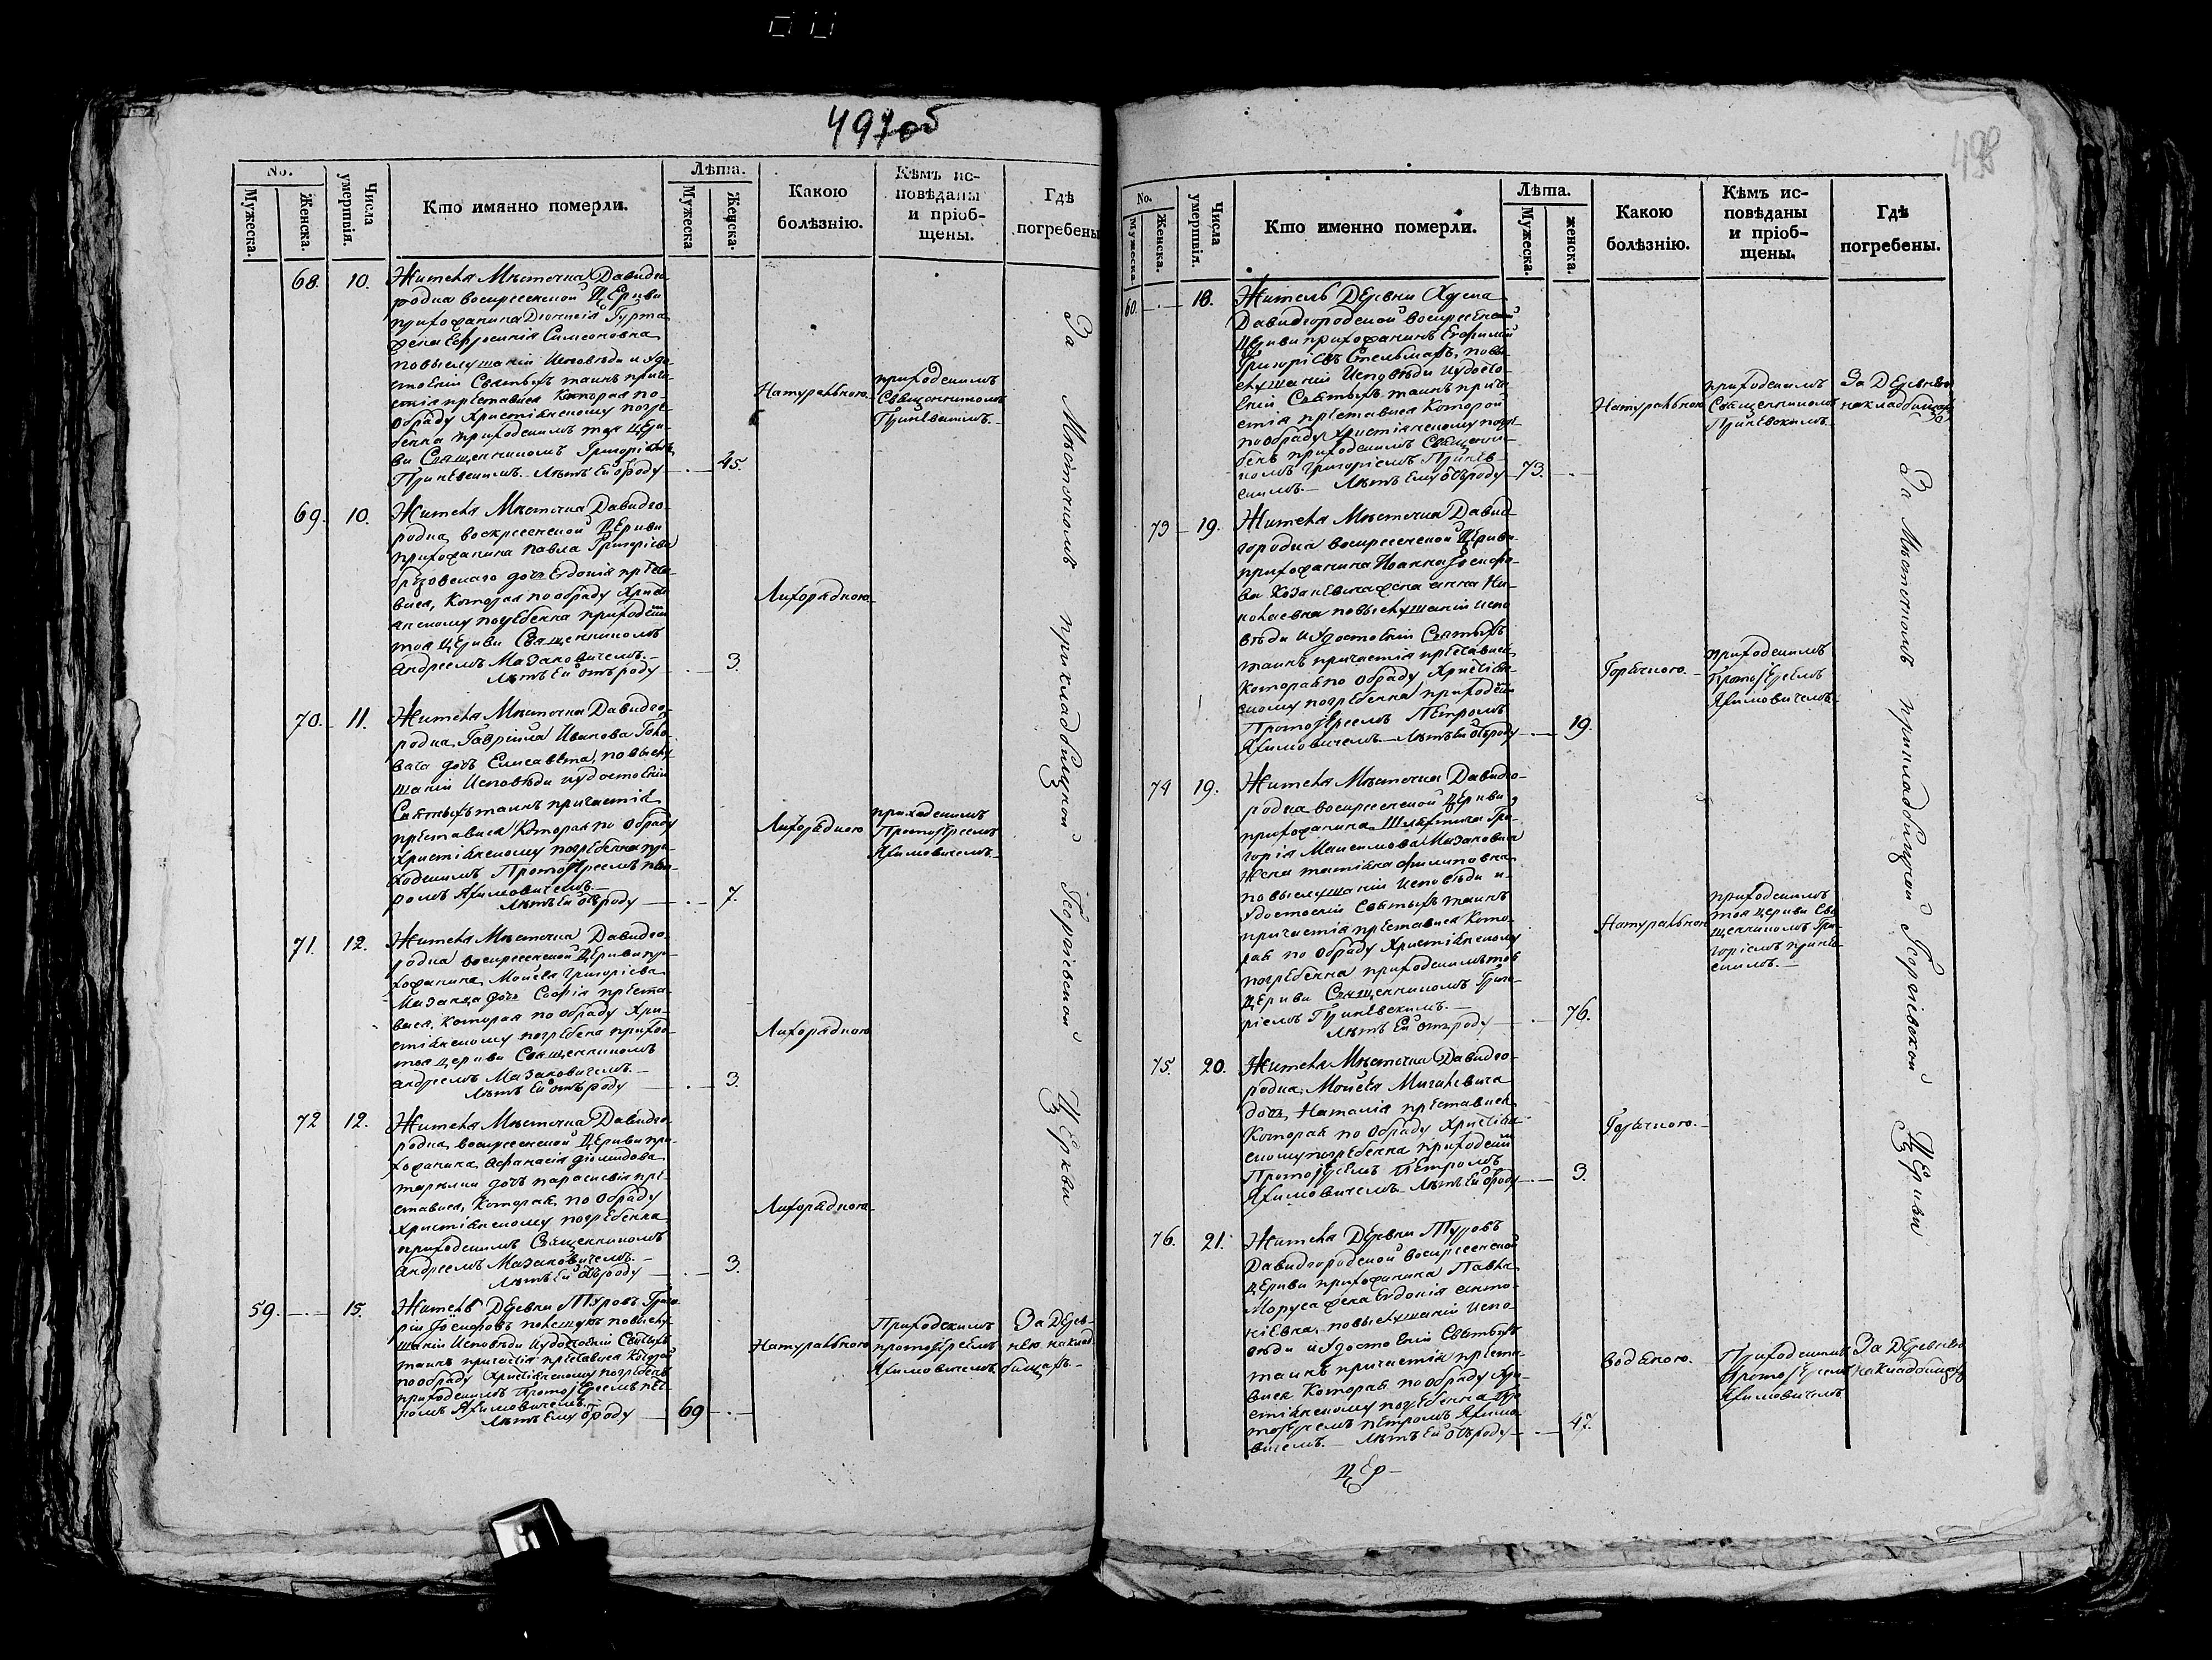 497об
No.
Мужеска.
Женска.
Числа умертвія.
Кто имянно померли.
Лѣта.
Мужеска
Женска.
Какою болѣзнію.
Кѣмъ исповѣданы и пріобщены.
Гдѣ погребены
68. 10. Жителя Мѣсточка Давидго
родка воскресенской Церкви
прихожанина Дионисія Гурма
жена Ефросинія Симеоновна
повыслушаніи Исповѣди и удо
стоеніи Святыхъ таинъ прича
стія преставися Которая по
обряду Христіянскому погре
бенна приходскимъ тоя Церк
ви Священникомъ Григоріемъ
Лѣтъ Ей отроду 45.
Натуральною
приходскимъ
Священникомъ
69. 10. Жителя Мѣсточка Давидго
родка, воскресенской Церкви
прихожанина павла Григоріева
дочь Евдокія преста
вися, Которая по обряду Христі
янскому погребенна приходским
тоя Церкви Священникомъ
андреемъ Мазановичемъ.
Лѣтъ Ей отъ роду 3.
Лихорадкою
70. 11. Жителя Мѣсточка Давидго
родка, Гавріила Иванова
дочь Елисавета, по выслу
шаніи Исповѣди и удостоеніи
Святыхъ таинъ причастія
преставися Которая по обряду
Христіянскому погребенна при
ходскимъ Протоіереемъ пет
ромъ Якимовичемъ.
Лѣтъ Ей отроду 7.
Лихорадкою
приходскимъ
Протоіереемъ
Якимовичемъ
71. 12. Жителя Мѣсточка Давидго
родка воскресенской Церкви при
хожанина, Мойсея Григоріева
дочь Софія преста
вися, Которая по обряду Хри
стіянскому погребена приход
тоя церкви Священникомъ
андреемъ Мазановичемъ.
Лѣтъ Ей отъ роду 3.
Лихорадкою
72 12. Жителя Мѣсточка Давидго
родка, воскресенской Церкви при
хожанина, Афанасія
дочь параскевія пре
ставися, Которая, по обряду
Христіянскому погребенна
приходскимъ Священникомъ
андреемъ Мазановичемъ.
Лѣтъ Ей отроду 3.
Лихорадкою
59. 15. Житель Деревни Туровъ Григо
рій по выслу
шаніи Исповѣди и удостоеніи Святыхъ
таинъ причастія преставися Которой
по обряду Христіянскому погребенъ
приходскимъ Протоіереемъ пет
ромъ Якимовичемъ.
Лѣтъ Ему отроду 69
Натуральною
Приходскимъ
протоіереемъ
Якимовичемъ
За Дерев
нею на клад
бищахъ
За Мѣсточкомъ при кладбищной Георгіевской Церкви
498
No.
Мужеска
Женска.
Числа умертвія.
Кто именно померли.
Лѣта.
Мужеска.
женска.
Какою болѣзнію.
Кѣмъ исповѣданы и пріобщены.
Гдѣ погребены.
60. 18. Житель Деревни
Давидгородской воскресенской
Церкви прихожанинъ Евфимій
Григоріевъ Стельмахъ, по вы
слушаніи Исповѣди и удосто
еніи Святыхъ таинъ прича
стія преставися Которой
по обряду Христіянскому погре
бенъ приходскимъ Священни
комъ Григоріемъ
Лѣтъ Ему отъроду 73.
Натуральною
приходскимъ
Священникомъ
За Деревнею
на кладбищах
73 19. Жителя Мѣсточка Давид
городка воскресенской Церкви
прихожанина Иоанна
жена анна Ни
колаевна повыслушаніи испо
вѣди и удостоеніи Святыхъ
таинъ причастія преставися
Которая по обряду Христіян
скому погребенна приходским
Протоіереемъ Петромъ
Якимовичемъ Лѣтъ Ей отъроду 19.
Горячкою.
приходскимъ
Протоіереемъ
Якимовичемъ
74 19. Жителя Мѣсточка Давидго
родка воскресенской Церкви
прихожанина Шляхтича Гри
горія Максимова Мазановича
жена татіяна филиповна
по выслушаніи Исповѣди и
удостоеніи Святыхъ таинъ
причастія преставися Кото
рая по обряду Христіянскому
погребенна приходскимъ тоя
Церкви Священникомъ Григо
ріемъ
Лѣтъ Ей отъроду 76.
Натуральною
приходскимъ
тоя церкви Свя
щенникомъ Гри
горіемъ
75. 20. Жителя Мѣсточка Давидго
родка, Мойсея
дочь, Наталія преставися
Которая по обряду Христіян
скому погребенна приходским
Протоіереемъ Петромъ
Якимовичемъ Лѣтъ Ей отроду 3.
Горячкою.
76. 21. Жителя Деревни Туровъ
Давидгородской воскресенской
Церкви прихожанина Павла
Моруса жена Евдокія анто
ніевна, повыслушаніи Испо
вѣди и удостоеніи Святыхъ
таинъ причастія преста
вися Которая по обряду Хри
стіянскому погребенна про
тоіереемъ петромъ Якимо
вичемъ. Лѣтъ Ей отъроду 47.
Водяною.
Приходскимъ
Протоіереемъ
Якимовичемъ
За Деревнею
на кладбищах
За Мѣсточкомъ при кладбищной Георгіевской Церкви
Цер-